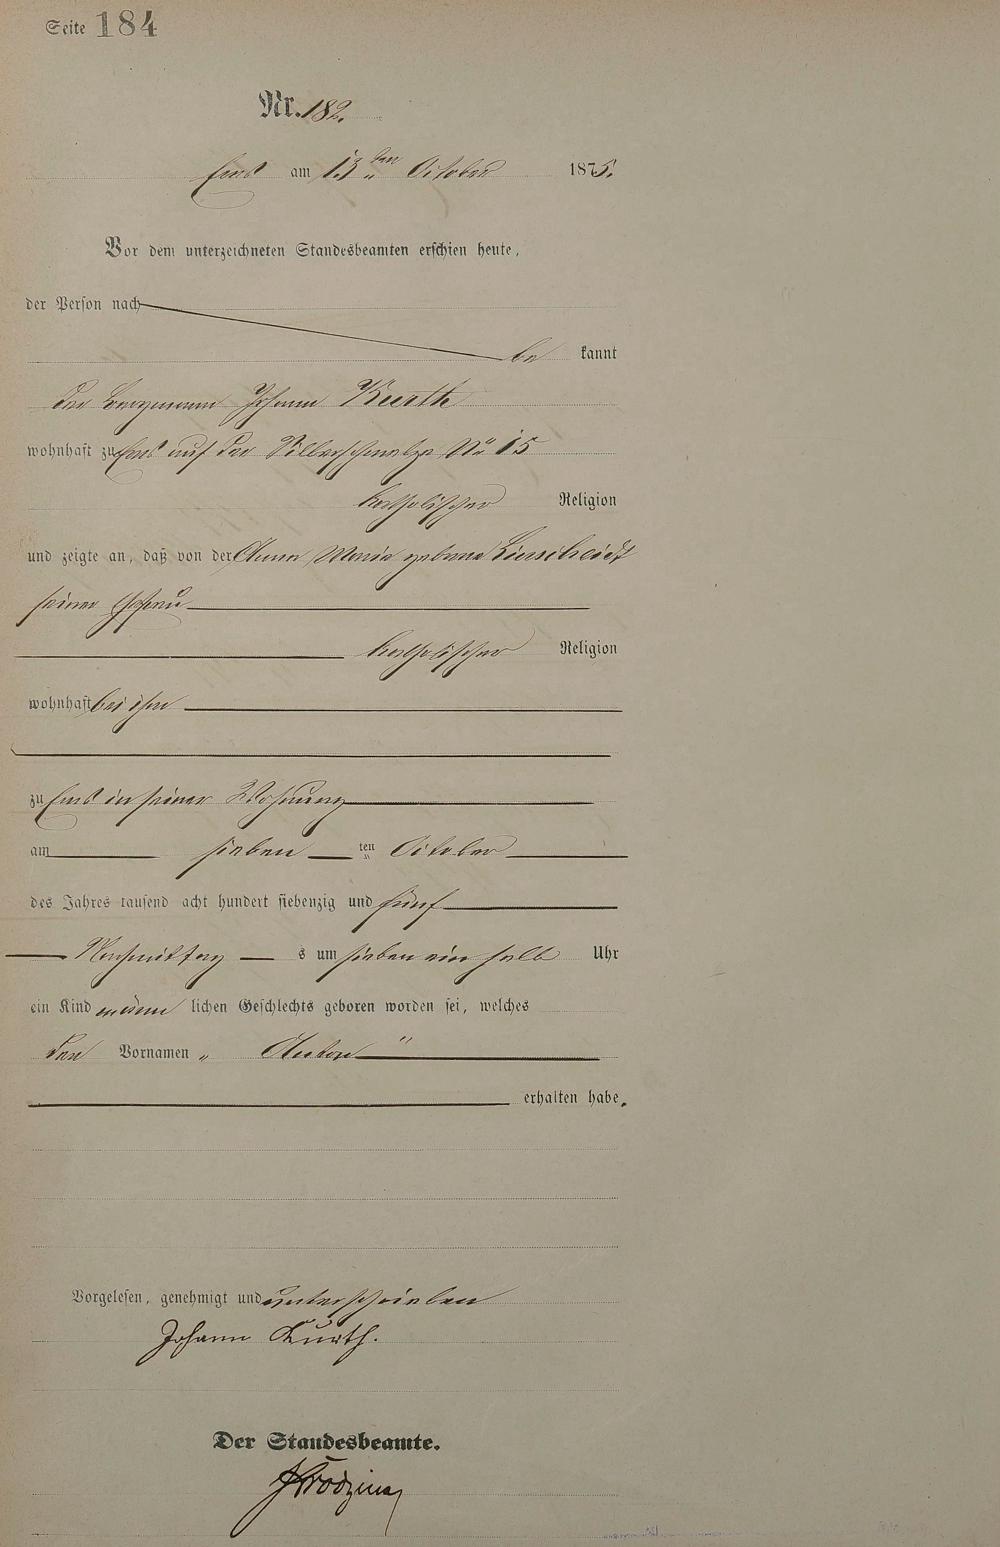 Seite 184
Nr. 182.
Ems am 13ten October 1875.
Vor dem unterzeichneten Standesbeamten erschien heute,
der Person nach
be kannt
der Bergmann Johann Kurth
wohnhaft zu Ems auf der Silberschmelze No 15
katholischer Religion
und zeigte an, daß von der Anna Maria geborene Lierscheidt
seiner Ehefrau
katholischer Religion
wohnhaft bei ihm
zu Ems in seiner Wohnung
am sieben ten October
des Jahres tausend acht hundert siebenzig und fünf
Nachmittag s um sieben ein halb Uhr
ein Kind männ lichen Geschlechts geboren worden sei, welches
den Vornamen „ Anton "
erhalten habe.
Vorgelesen, genehmigt und unterschrieben
Johann Kurth.
Der Standesbeamte.